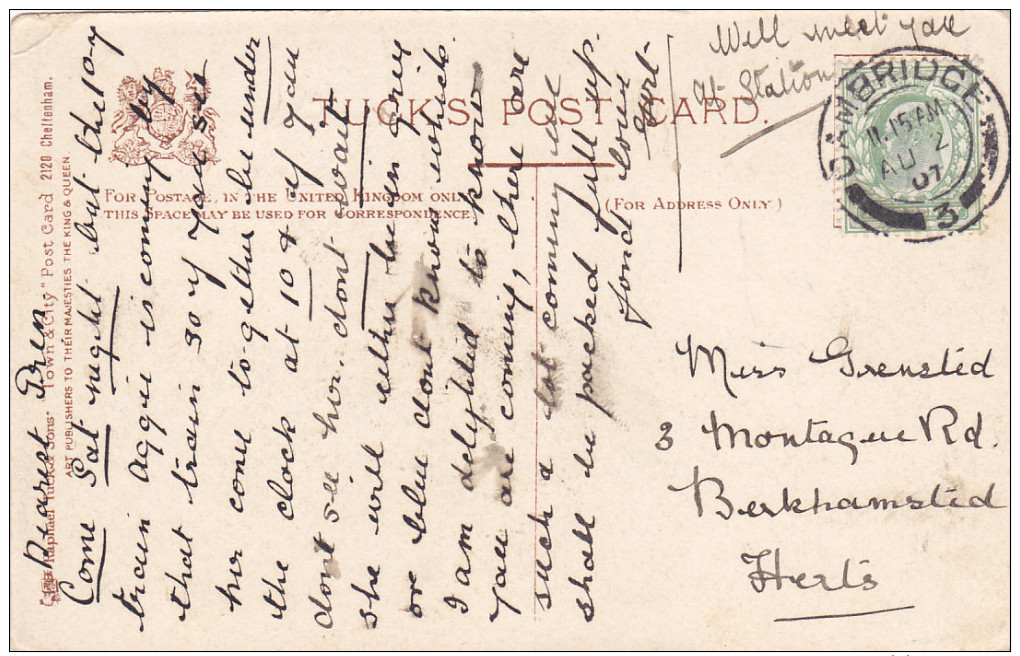 Will meet you
at Station
TUCK'S POST CARD.
FOR POSTAGE, IN THE UNITED KINGDOM ONLY
THIS SPACE MAY BE USED FOR CORRESPONDENCE.
(FOR ADDRESS ONLY)
CAMBRIDGE
11.15 AM
AU 2
07
3
Raphael Tuck & Sons' "Town & City" Post Card 2120 Cheltenham.
ART PUBLISHERS TO THEIR MAJESTIES THE KING & QUEEN.
Dearest Dren
Come Sat night but the 10-4
train Aggie is coming by
that train so if you see
her come to-gether be under
the clock at 10 & if you
dont see her dont wait
she will either be in grey
or blue dont know which.
I am delyhted to know
you are coming, there are
such a lot coming we
shall be packed full up.
fond love
Gert.
Miss Grensted
3 Montague Rd.
Berkhamsted
Herts